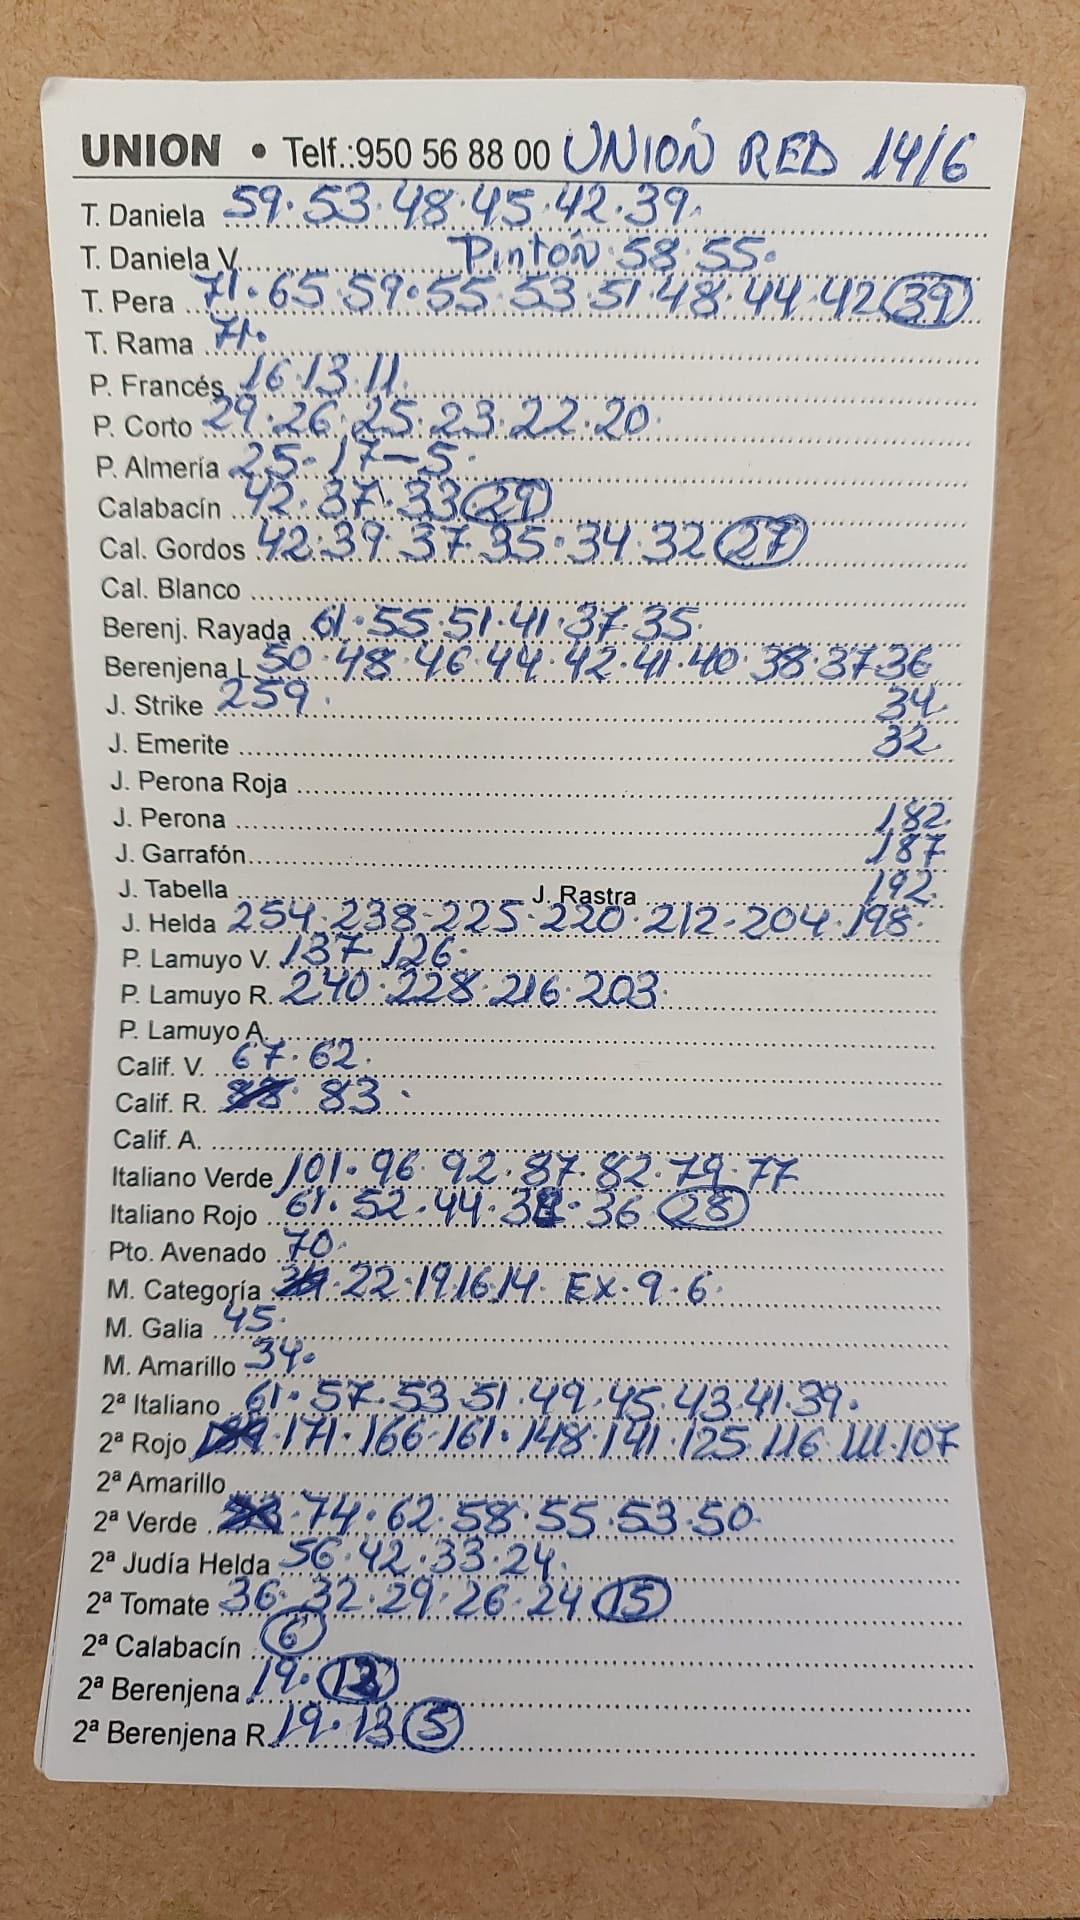 UNION • Telf.:950 56 88 00 UNIÓN RED 14/6
T. Daniela 59·53·48·45·42·39·
T. Daniela V. Pintón 58·55·
T. Pera 71·65·59·55·53·51·48·44·42 39
T. Rama 71·
P. Francés 16·13·11·
P. Corto 29·26·25·23·22·20·
P. Almería 25-17-5·
Calabacín 42·37·33
Cal. Gordos 42·39·37·35·34·32 27
Cal. Blanco
Berenj. Rayada 61·55·51·41·37·35·
Berenjena L. 50·48·46·44·42·41·40·38·37·36
J. Strike 259· 34·
J. Emerite 32·
J. Perona Roja
J. Perona 182·
J. Garrafón 187
J. Tabella J. Rastra 192·
J. Helda 254·238·225·220·212·204·198·
P. Lamuyo V. 137·126·
P. Lamuyo R. 240·228·216·203·
P. Lamuyo A.
Calif. V. 67·62·
Calif. R. 83·
Calif. A.
Italiano Verde 101·96·92·87·82·79·77
Italiano Rojo 61·52·44·36 28
Pto. Avenado 70·
M. Categoría 22·19·16·14· EX·9·6·
M. Galia 45·
M. Amarillo 34·
2ª Italiano 61·57·53·51·49·45·43·41·39·
2ª Rojo 171·166·161·148·141·125·116·111·107
2ª Amarillo
2ª Verde 74·62·58·55·53·50·
2ª Judía Helda 56·42·33·24·
2ª Tomate 36·32·29·26·24 15
2ª Calabacín 6
2ª Berenjena 19·
2ª Berenjena R. 19·13 5